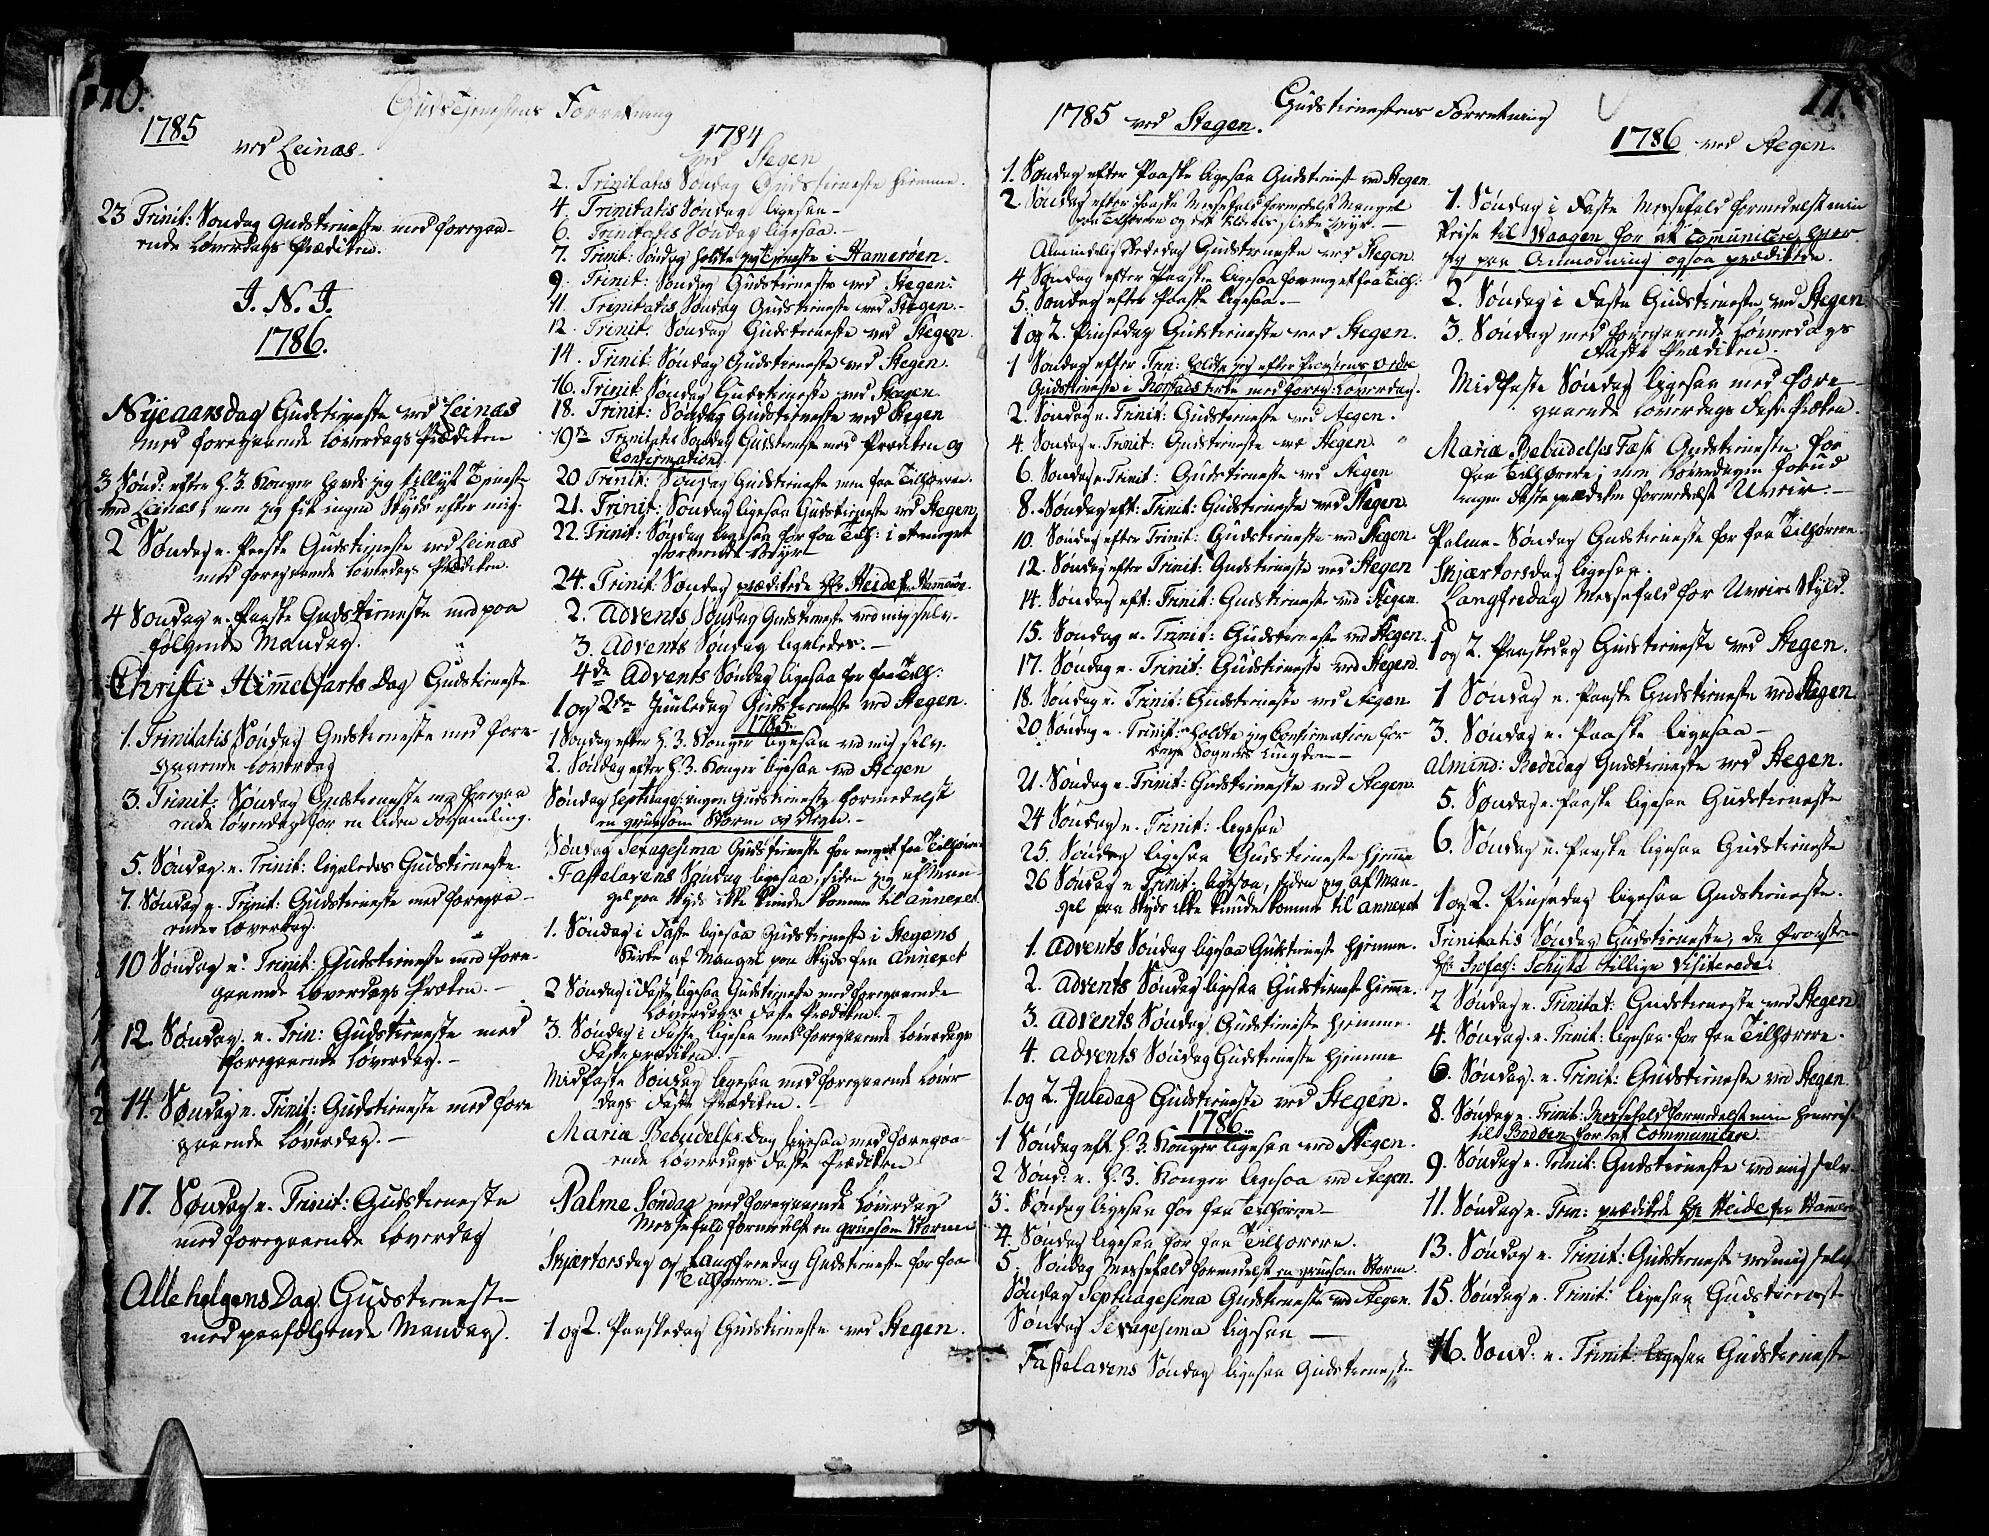 10.
Gudstienestens Forretning
1785
ved Leines.
23 Trinit: Søndag Gudstieneste med foregaa-
ende Løverdags Prædiken.
J. N. J.
1786.
Nyeaarsdag Gudstieneste ved Leinæs
med foregaaende Løverdags Prædiken
3 Sønd: efter H. 3. Konger havde jeg tillyst Tieneste
ved Leinæs, men jeg fik ingen Skyds efter mig.
2 Søndag e. Paaske Gudstieneste ved Leinæs
med foregaaende Løverdags Prædiken.
4 Søndag e. Paaske Gudstieneste med paa
følgende Mandag.
Christi Himmelfarts Dag Gudstieneste
1. Trinitatis Søndag Gudstieneste med fore-
gaaende Løverdag
3. Trinit. Søndag Gudstieneste med foregaa
ende Løverdag for en liden Forsamling.
5. Søndag e. Trinit: ligeledes Gudstieneste
7. Søndag e. Trinit: Gudstieneste med foregaa-
ende Løverdag.
10 Søndag e. Trinit: Gudstieneste med fore-
gaaende Løverdags Præken. -
12. Søndag e. Trin: Gudstieneste med
foregaaende Løverdag. -
14. Søndag e. Trinit: Gudstieneste med fore
gaaende Løverdag. -
17. Søndag e. Trinit: Gudstieneste
med foregaaende Løverdag
Alle helgens Dag Gudstieneste
med paafølgende Mandag.
1784
ved Stegen
2. Trinitatis Søndag Gudstieneste hiemme.
4. Trinitatis Søndag ligesaa -
6. Trinitatis Søndag ligesaa. -
7. Trinit: Søndag holdte jeg Tieneste i Hamerøen.
9. Trinit: Søndag Gudstieneste ved Stegen:
11. Trinitatis Søndag Gudstieneste ved Stegen.
12. Trinit. Søndag Gudstieneste ved Stegen.
14. Trinit. Søndag Gudstieneste ved Stegen.
16. Trinit Søndag Gudstieneste ved Stegen
18. Trinit: Søndag Gudstieneste ved Stegen
19de Trinitatis Søndag Gudstieneste med Præken og
Confirmation
20 Trinit: Søndag Gudstieneste men faa Tilhørere.
21. Trinit: Søndag ligesaa Gudstieneste ved Stegen,
22. Trinit: Søndag ligesaa for faa Tilh: i et meget
stormende Veyr
24. Trinit: Søndag prædikede Hr Heide fra Hamerøe
2. Advents Søndag Gudstieneste ved mig selv.
3. Advents Søndag ligeledes. -
4de Advents Søndag ligesaa for faa Tilh:
1 og 2den Juuledag Gudstieneste ved Stegen.
1785.
1 Søndag efter H. 3. Konger ligesaa ved mig selv.
2. Søndag efter H. 3. Konger ligesaa ved Stegen
Søndag Septuages: ingen Gudstieneste formedelst
en gruesom Storm og Regn. -
Søndag Sexagesima Gudstieneste for meget faa Tilhørere
Fastelavens Søndag ligesaa, siden jeg af Man-
gel paa Skyds ikke kunde komme til annexet.
1. Søndag i Faste ligesaa Gudstieneste i Stegens
Kirke af Mangel paa Skyds fra Annexet
2 Søndag i Faste ligesaa Gudstieneste med foregaaende
Løverdags Faste Prædiken. -
3. Søndag i Faste ligesaa med foregaaende Løverdags
Faste prædiken.
Midfaste Søndag ligesaa med foregaaende Løver
dags Faste Prædiken. -
Maria Bebudelses Dag ligesaa med foregaa-
ende Løverdags Faste Prædiken
Palme Søndag med foregaaende Løverdag
Messefald formedelst en gruesom Storm
Skjærtorsdag og Langfredag Gudstieneste for faa
Tilhørere. -
1 og 2. Paaskedag Gudstieneste ved Stegen.
11.
Gudstienestens Forretning
1785 ved Stegen.
1. Søndag efter Paaske ligesaa Gudstieneste ved Stegen.
2 Søndag efter Paaske Messefald formedelst Mangel
paa Tilhørere og det slette Veyr. -
Almindelig Bededag Gudstieneste ved Stegen
4 Søndag efter Paaske ligesaa for meget faa Tilh:
5. Søndag efter Paaske ligesaa. -
1 og 2. Pinsedag Gudstieneste ved Stegen.
1 Søndag efter Trin: holdte jeg efter Provstens Ordre
Gudstieneste i Kirke med foreg: Løverdag.
2. Søndag e. Trinit: Gudstieneste ved Stegen.
4. Søndag e. Trinit: Gudstieneste ved Stegen.
6. Søndag e. Trinit: Gudstieneste ved Stegen
8. Søndag eft: Trinit: Gudstieneste ved Stegen.
10. Søndag efter Trinit: Gudstieneste ved Stegen.
12. Søndag efter Trinit: Gudstieneste ved Stegen
14. Søndag eft. Trinit: Gudstieneste ved Stegen.
15. Søndag e. Trinit: Gudstieneste ved Stegen.
17. Søndag e. Trinit: Gudstieneste ved Stegen.
18. Søndag e. Trinit: Gudstieneste ved Stegen
20. Søndag e. Trinit: holdte jeg Confirmation for
Sognets Ungdom -
21. Søndag e. Trinit: Gudstieneste ved Stegen.
24 Søndag e. Trinit: ligesaa
25. Søndag ligesaa Gudstieneste hjemme
26 Søndag e Trinit. ligesaa, siden jeg af Man-
gel paa Skyds ikke kunde komme til annexet
1. Advents Søndag ligesaa Gudstieneste hjemme.
2. Advents Søndag ligesaa Gudstieneste hjemme.
3. Advents Søndag Gudstieneste hjemme.
4. Advents Søndag Gudstieneste hjemme
1. og 2. Juledag Gudstieneste ved Stegen.
1786.
1 Søndag eft. H. 3. Konger ligesaa ved Stegen.
2 Sønd: e. H. 3. Konger ligesaa ved Stegen.
3. Søndag ligesaa for faa Tilhørere -
4. Søndag ligesaa for faa Tilhørere.
5. Søndag Messefald formedelst en gruesom Storm.
Søndag Septuagesima Gudstieneste ved Stegen.
Søndag Sexagesima ligesaa -
Fastelavens Søndag ligesaa Gudstieneste
1786 ved Stegen.
1. Søndag i Faste Messefald formedelst min
Reise til Vaagen for at communicere, hvor
jeg paa Anmodning ogsaa prædikede.
2. Søndag i Faste Gudstieneste ved Stegen
3. Søndag med foregaaende Løverdags
Faste Prædiken
Midfaste Søndag ligesaa med fore-
gaaende Løverdags Faste Præken.
Maria Bebudelses Fæst Gudstieneste for
faa Tilhørere; men Løverdagen forud
ingen Faste prædiken formedelst Uveir. -
Palme-Søndag Gudstieneste for faa Tilhørere
Skjærtorsdag ligesaa.
Langfredag Messefald for Uveirs Skyld.
1 og 2. Paaskedag Gudstieneste ved Stegen.
1 Søndag e. Paaske Gudstieneste ved Stegen
3. Søndag e. Paaske ligesaa -
Almind: Bededag Gudstieneste ved Stegen.
5. Søndag e. Paaske ligesaa Gudstieneste
6. Søndag e. Paaske ligesaa Gudstieneste
1 og 2. Pinsedag ligesaa Gudstieneste.
Trinitatis Søndag Gudstieneste, da Provsten
Hr Profes: Schytte tillige visiterede.
2 Søndag e. Trinitat: Gudstieneste ved Stegen
4. Søndag e. Trinit: ligesaa for faa Tilhørere.
6. Søndag e. Trinit: Gudstieneste ved Stegen
8. Søndag e. Trinit: Messefald formedelst min Henreise
til Bodøen for at communicere.
9. Søndag e. Trinit: Gudstieneste ved mig selv
11. Søndag e. Trin: prædikede Hr Heide fra Hammerøe
13. Søndag e. Trinit: Gudstieneste ved mig selv
15. Søndag e. Trinit: ligesaa Gudstieneste
16. Sønd: e. Trinit: ligesaa Gudstieneste